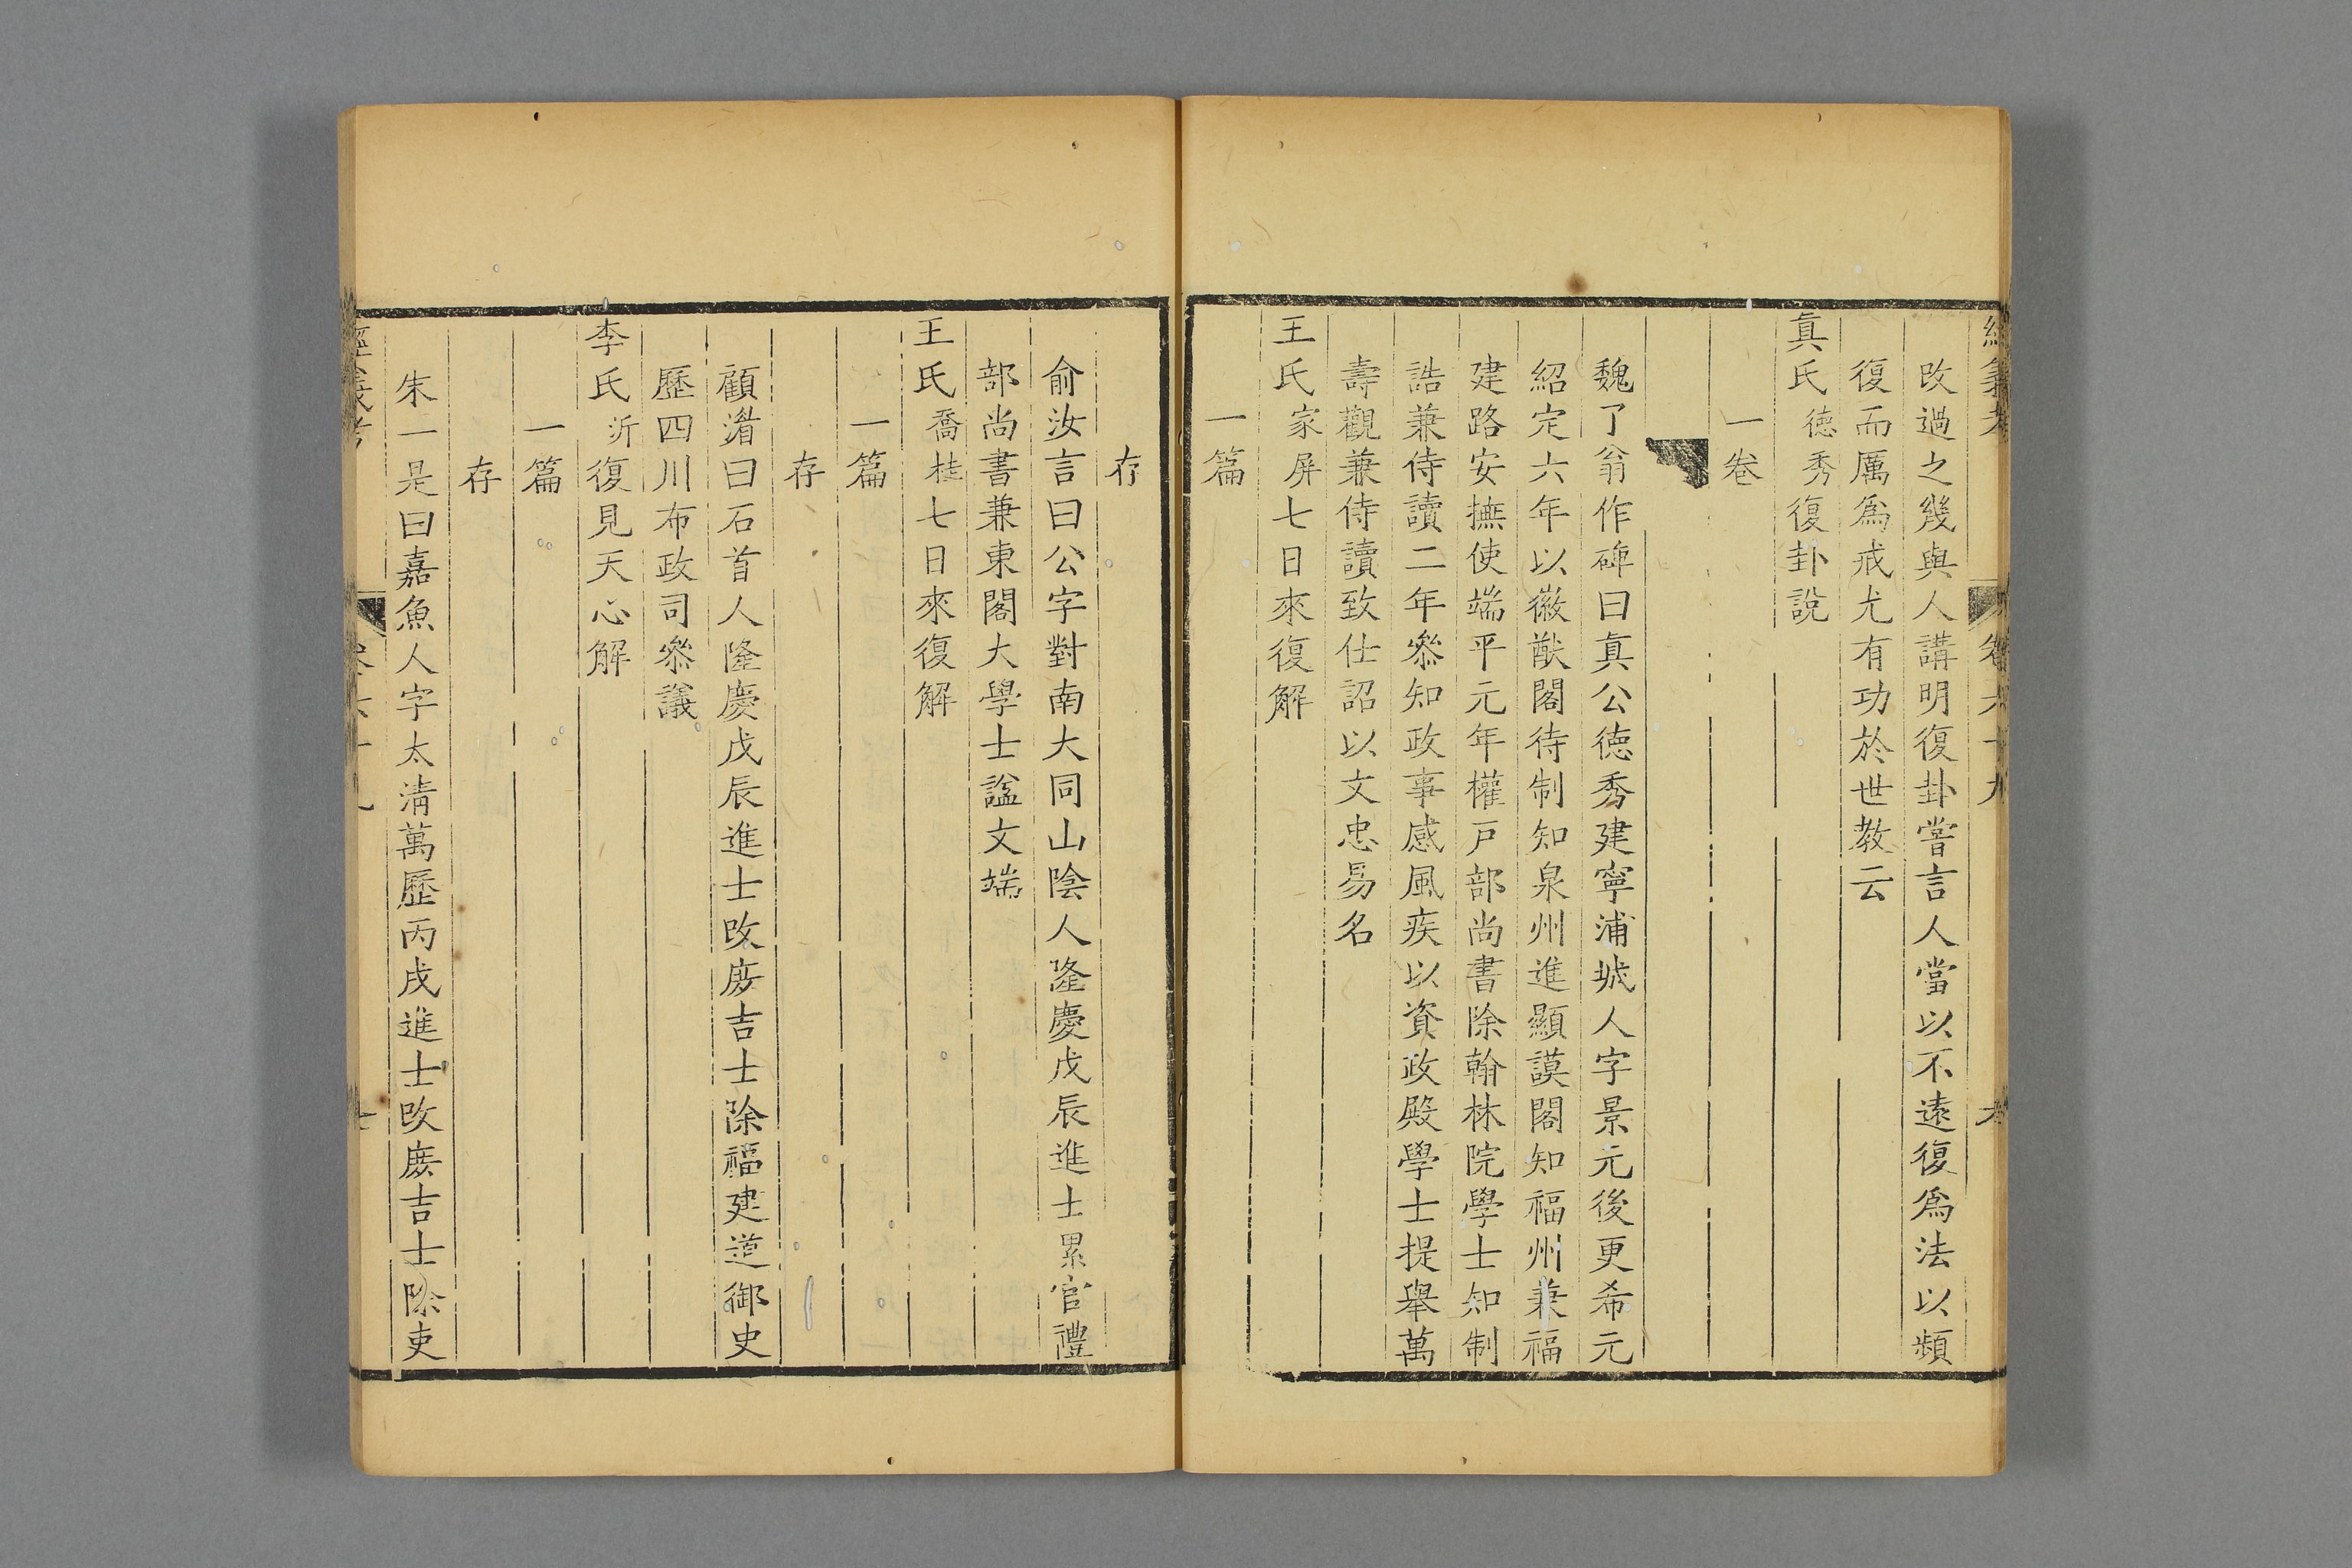 經義考　卷六十九
改過之幾與人講明復卦嘗言人當以不遠復爲法以頻
復而厲爲戒尤有功於世教云
真氏德秀復卦說
一卷
魏了翁作碑曰真公德秀建寧浦城人字景元後更希元
紹定六年以徽猷閣待制知泉州進顯謨閣知福州兼福
建路安撫使端平元年權戸部尚書除翰林院學士知制
誥兼侍讀二年叅知政事感風疾以資政殿學士提舉萬
壽觀兼侍讀致仕詔以文忠易名
王氏家屏七日來復解
一篇
存
俞汝言曰公字對南大同山陰人隆慶戊辰進士累官禮
部尚書兼東閣大學士諡文端
王氏喬桂七日來復解
一篇
存
顧湝曰石首人隆慶戊辰進士改庶吉士除福建道御史
歷四川布政司叅議
李氏沂復見天心解
一篇
存
朱一是曰嘉魚人字太清萬歷丙戌進士改庶吉士除吏
經義考　卷六十九